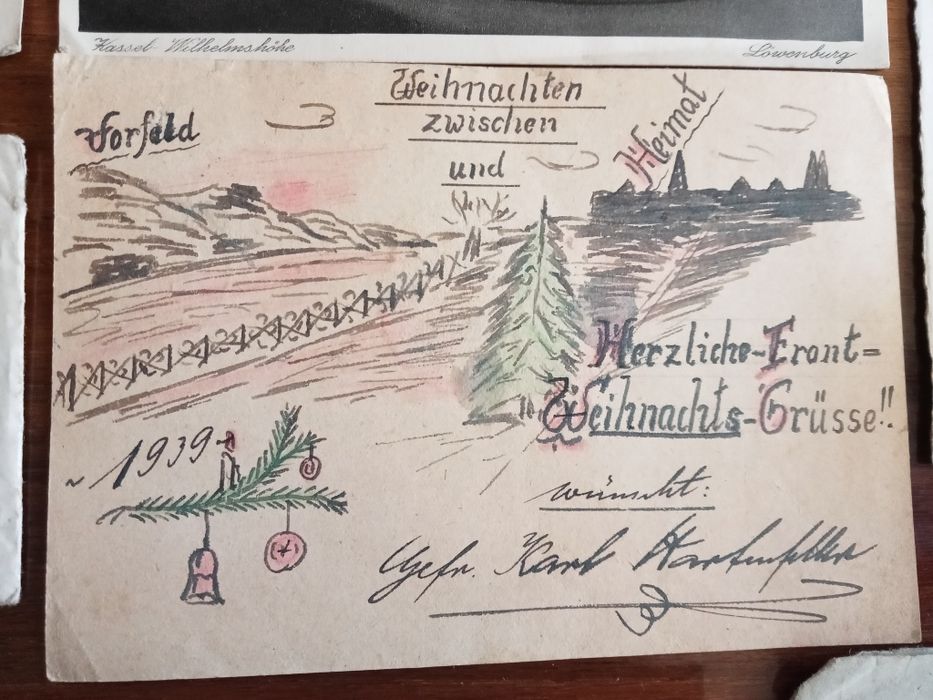 Kassel-Wilhelmshöhe
Löwenburg
Weihnachten
zwischen
Vorfeld
und
Heimat
Herzliche-Front=
Weihnachts-Grüsse!!
~ 1939 ~
wünscht:
Gefr. Karl